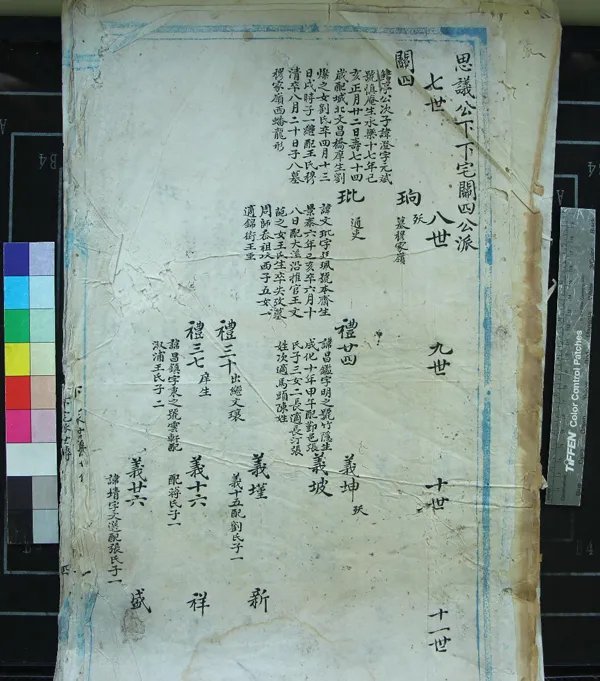 思議公下下宅關四公派
七世
八世
九世
十世
十一世
關四
公次子諱澄字元斌
號慎庵生永樂十七年己
亥正月廿二日壽七十四
歲配城北文昌橋庠生劉
燦之女劉氏卒四月十三
日戌時子一繼配王氏穆
清卒八月二十日子八墓
穆家嶺西皤龍形
珦
殀
墓穆家嶺
玭
通吏
諱文玭字廷珮號本齋生
景泰六年乙亥卒六月十
八日配大溪沿推官王文
範之女王氏生卒失攷墓
周師泰祖坟西子五女一
適錦街王垔
禮廿四
諱昌鑑字明之號竹隱生
成化十年甲午配鄞邑張
氏子三女二長適長汀張
姓次適馬頭陳姓
禮三十
出繼文瓌
禮三七
庠生
諱昌鎮字東之號雲軒配
溆浦王氏子二
義坤
殀
義坡
義墐
義十五配劉氏子一
義十六
配蔣氏子一
義廿六
諱墳字文選配張氏子一
新
祥
盛
TIFFEN Color Control Patches
B4
A4